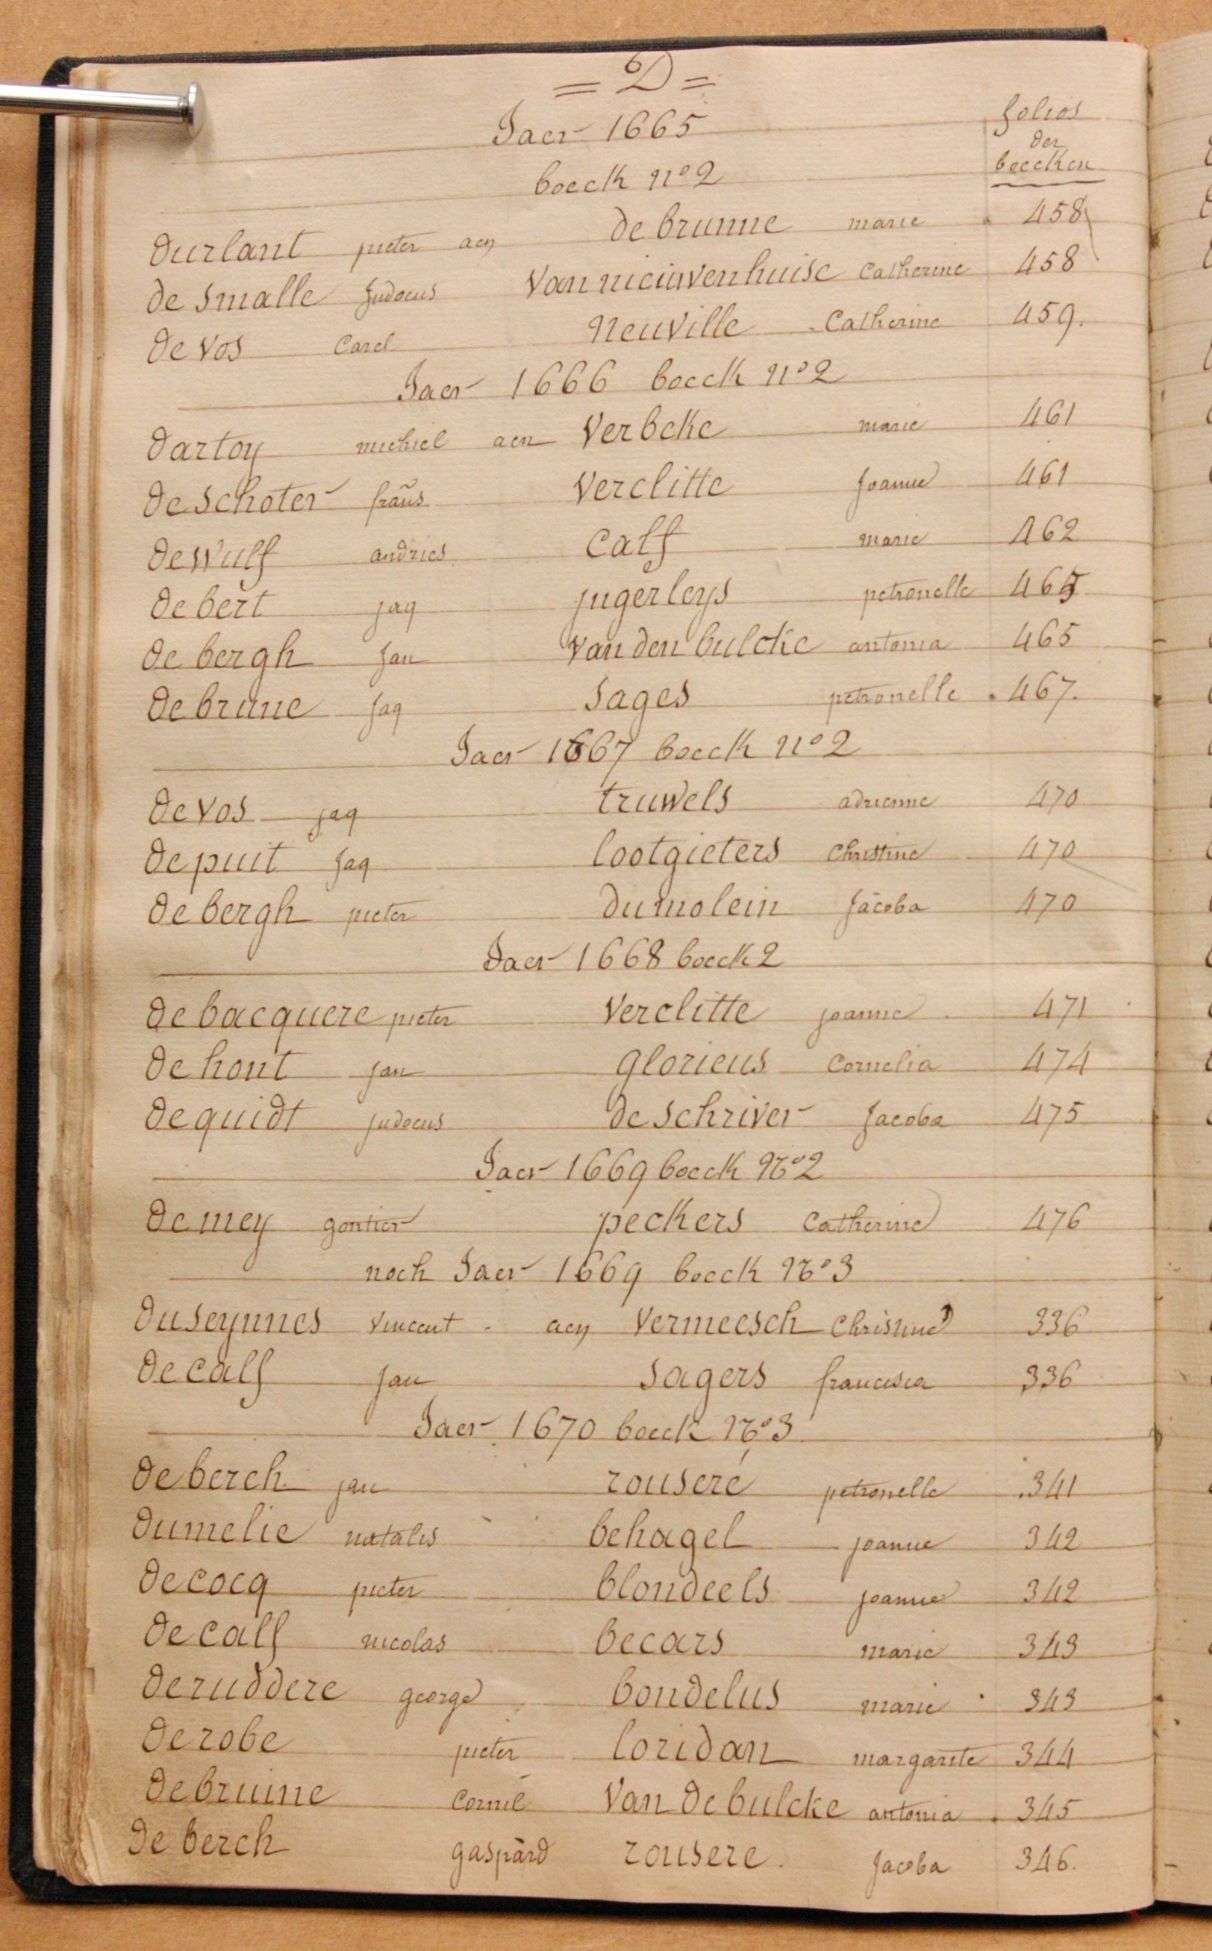 = D =
Jaer 1665
folios
der
boecken
boeck n° 2
durlant pieter aen de brunne marie 458
de smalle Judocus van nieuwenhuise Catherine 458
de vos Carel neuville Catherine 459.
Jaer 1666 boeck n° 2
dartoy michiel aen verbeke marie 461
de schoter frañs verclitte Joanne 461
de wulf andries calf marie 462
de bert jaq jngerleys petronelle 465
de bergh Jan van den bulcke antonia 465
de brune Jaq sages petronelle 467.
Jaer 1667 boeck n° 2
de vos jaq truwels adrienne 470
de puit Jaq lootgieters Christine 470
de bergh pieter dumolein Jacoba 470
Jaer 1668 boeck 2
de bacquere pieter verclitte joanne 471
de hont jan glorieus Cornelia 474
de quidt judocus de schriver Jacoba 475
Jaer 1669 boeck N° 2
de mey gontier peckers Catherine 476
noch Jaer 1669 boeck N° 3
duseynnes vincent aen vermeesch Christine 336
de calf Jan sagers francisca 336
Jaer 1670 boeck N° 3
de berch jan rouseré petronelle 341
dumelie natalis behagel joanne 342
de cocq pieter blondeels joanne 342
de calf nicolas becars marie 343
de ruddere george bondelus marie 343
de robe pieter loridan margarite 344
de bruine Cornil van de bulcke antonia 345
de berch gaspard rousere Jacoba 346.